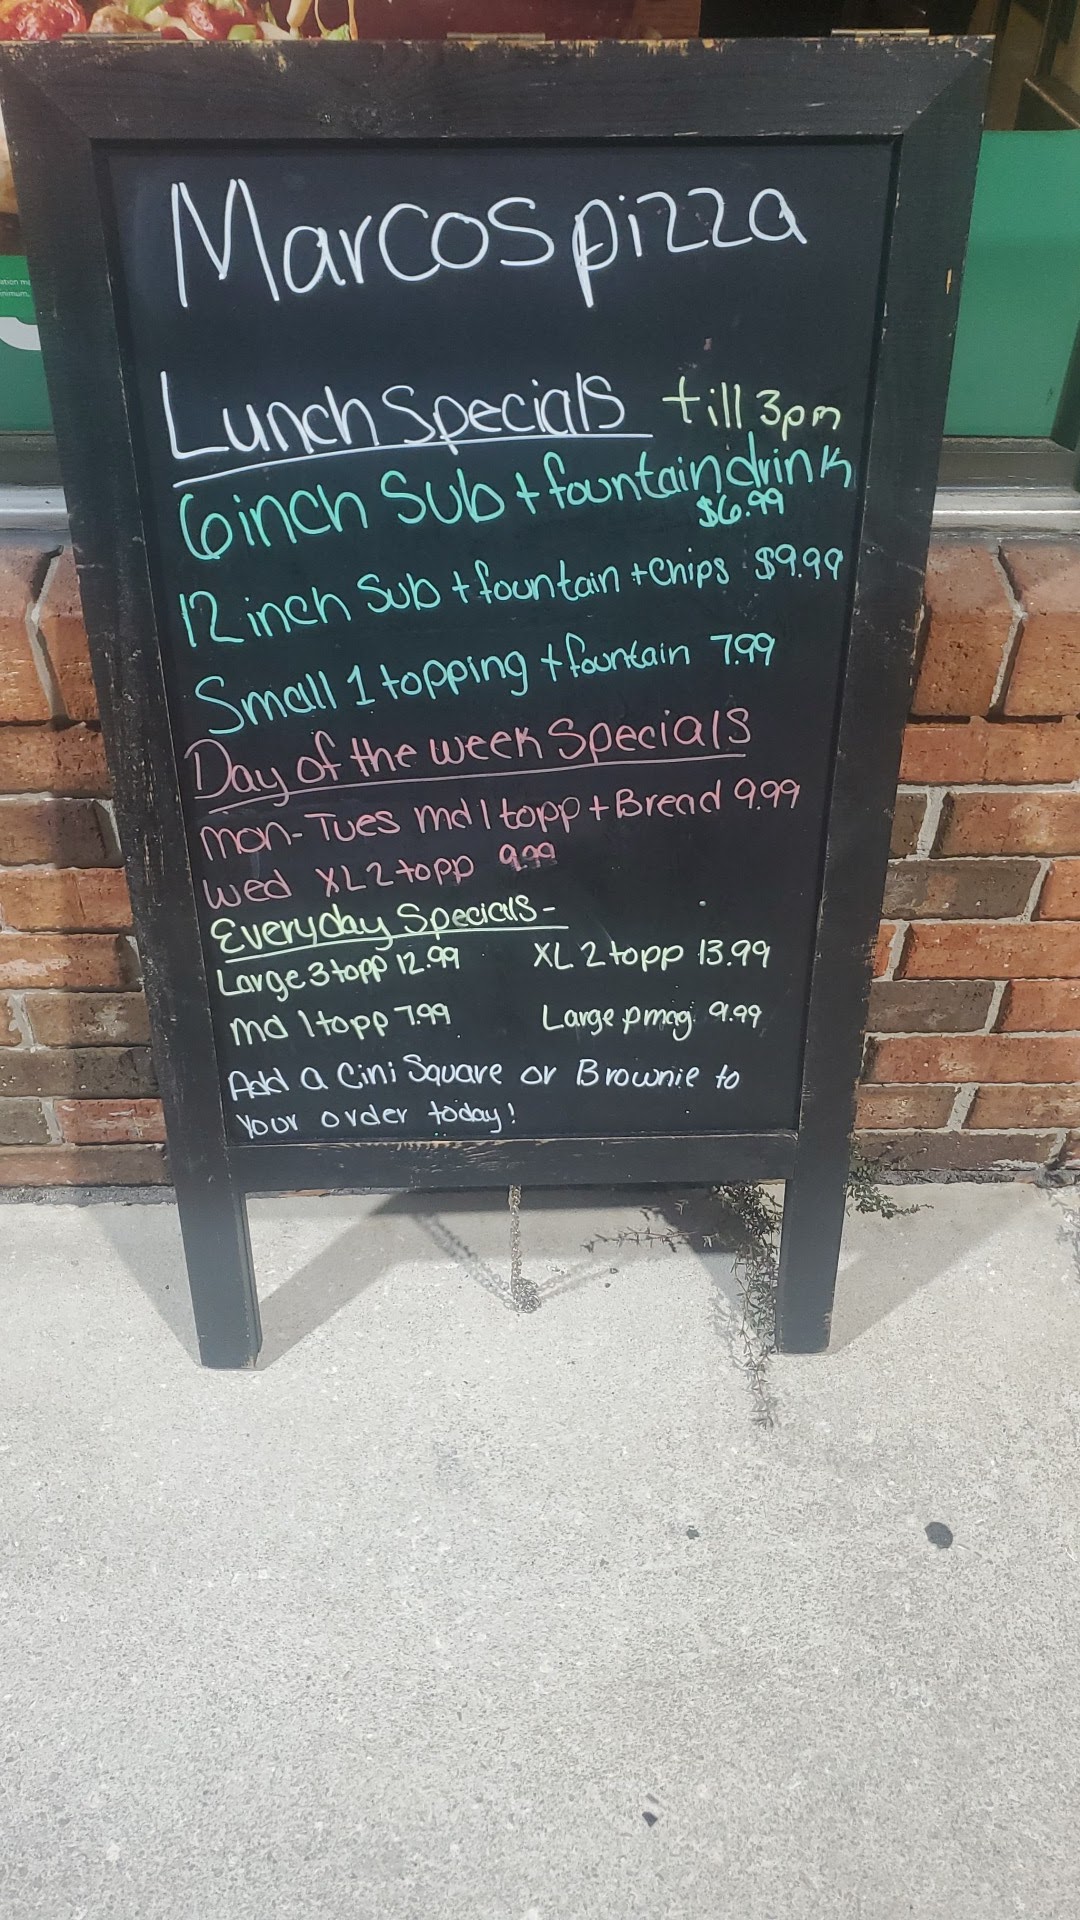 Marcos pizza
Lunch Specials till 3pm
6inch Sub + fountain drink
$6.99
12 inch Sub + fountain + Chips $9.99
Small 1 topping + fountain 7.99
Day of the week Specials
Mon-Tues md 1 topp + Bread 9.99
Wed XL 2 topp 9.99
Everyday Specials-
Large 3 topp 12.99 XL 2 topp 13.99
md 1 topp 7.99 Large pmag 9.99
Add a Cini Square or Brownie to
Your order today!